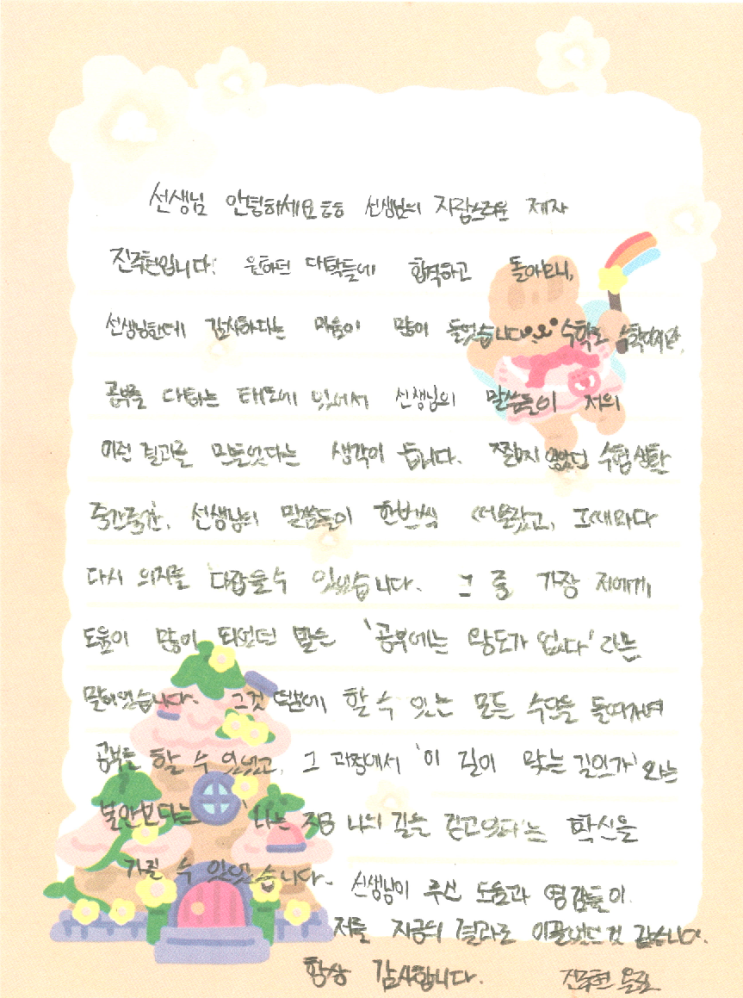 선생님 안녕하세요ㅎㅎ 선생님의 자랑스러운 제자
진주현입니다. 원하던 대학들에 합격하고 돌아보니,
선생님한테 감사하다는 마음이 많이 들었습니다. 수학도 수학이지만,
공부를 대하는 태도에 있어서 선생님의 말씀들이 저의
이런 결과를 만들었다는 생각이 듭니다. 짧지 않았던 수험생활
중간중간, 선생님의 말씀들이 한번씩 떠올랐고, 그때마다
다시 의지를 다잡을 수 있었습니다. 그 중 가장 저에게
도움이 많이 되었던 말은 '공부에는 왕도가 없다' 라는
말이었습니다. 그것 때문에 할 수 있는 모든 수단을 동원하여
공부를 할 수 있었고, 그 과정에서 '이 길이 맞는 길인가' 와는
불안보다는 '나는 지금 나의 길을 걷고있다'는 확신을
가질 수 있었습니다. 선생님이 주신 도움과 영감들이
저를 지금의 결과로 이끌었던 것 같습니다.
항상 감사합니다. 진주현 올림